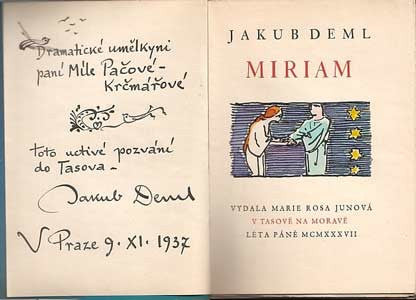 Dramatické umělkyni
paní Míle Pačové-
Krčmářové
toto uctivé pozvání
do Tasova-
Jakub Deml
V Praze 9. XI. 1937
JAKUB DEML
MIRIAM
VYDALA MARIE ROSA JUNOVÁ
V TASOVĚ NA MORAVĚ
LÉTA PÁNĚ MCMXXXVII